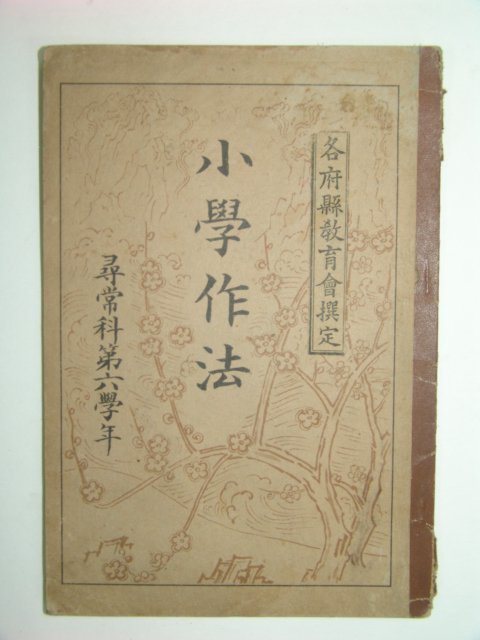 各府縣敎育會撰定
小學作法
尋常科第六學年